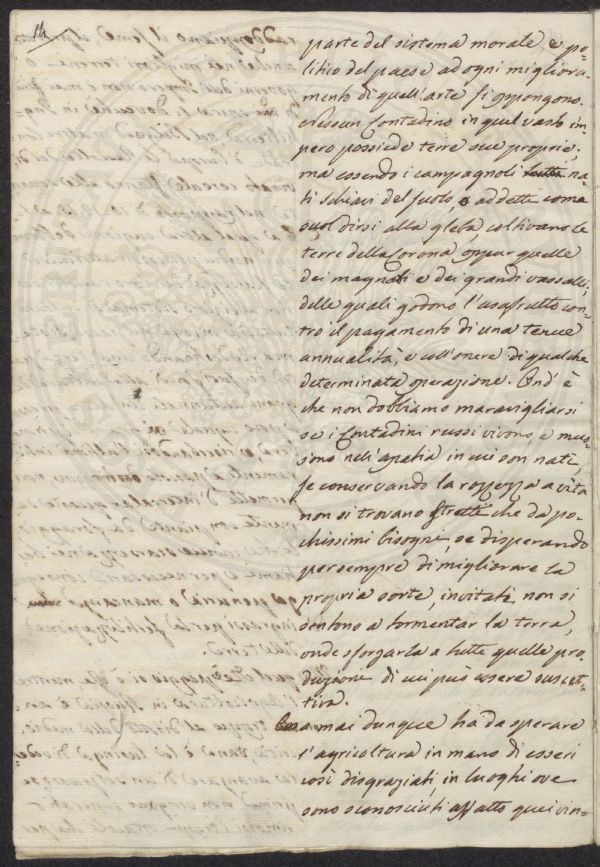 14
parte del sistema morale, e po-
litico del paese ad ogni migliora-
mento di quell'arte si oppongono.
Nessun Contadino in quel vasto im-
pero possiede terre sue proprie;
ma essendo i campagnoli tutti na-
ti schiavi del suolo e addetti come
suol dirsi alla gleba, coltivano le
terre della Corona oppur quelle
dei magnati e dei grandi vassalli;
delle quali godono l'usufrutto con-
tro il pagamento di una tenue
annualità, e coll'onere di qualche
determinata operazione. Ond'è
che non dobbiamo maravigliarsi
se i Contadini russi vivono, e muo-
iono nell'apatia in cui son nati,
se conservando la rozzezza avita
non si trovano stretti che da po-
chissimi bisogni, se disperando
per sempre di migliorare la
propria sorte, invitati non si
sentono a tormentar la terra,
onde sforzarla a tutte quelle pro-
duzione di cui può essere suscet-
tiva.
a mai dunque ha da sperare
l'agricoltura in mano di esseri
così disgraziati, in luoghi ove
sono sconosciuti affatto quei vin-